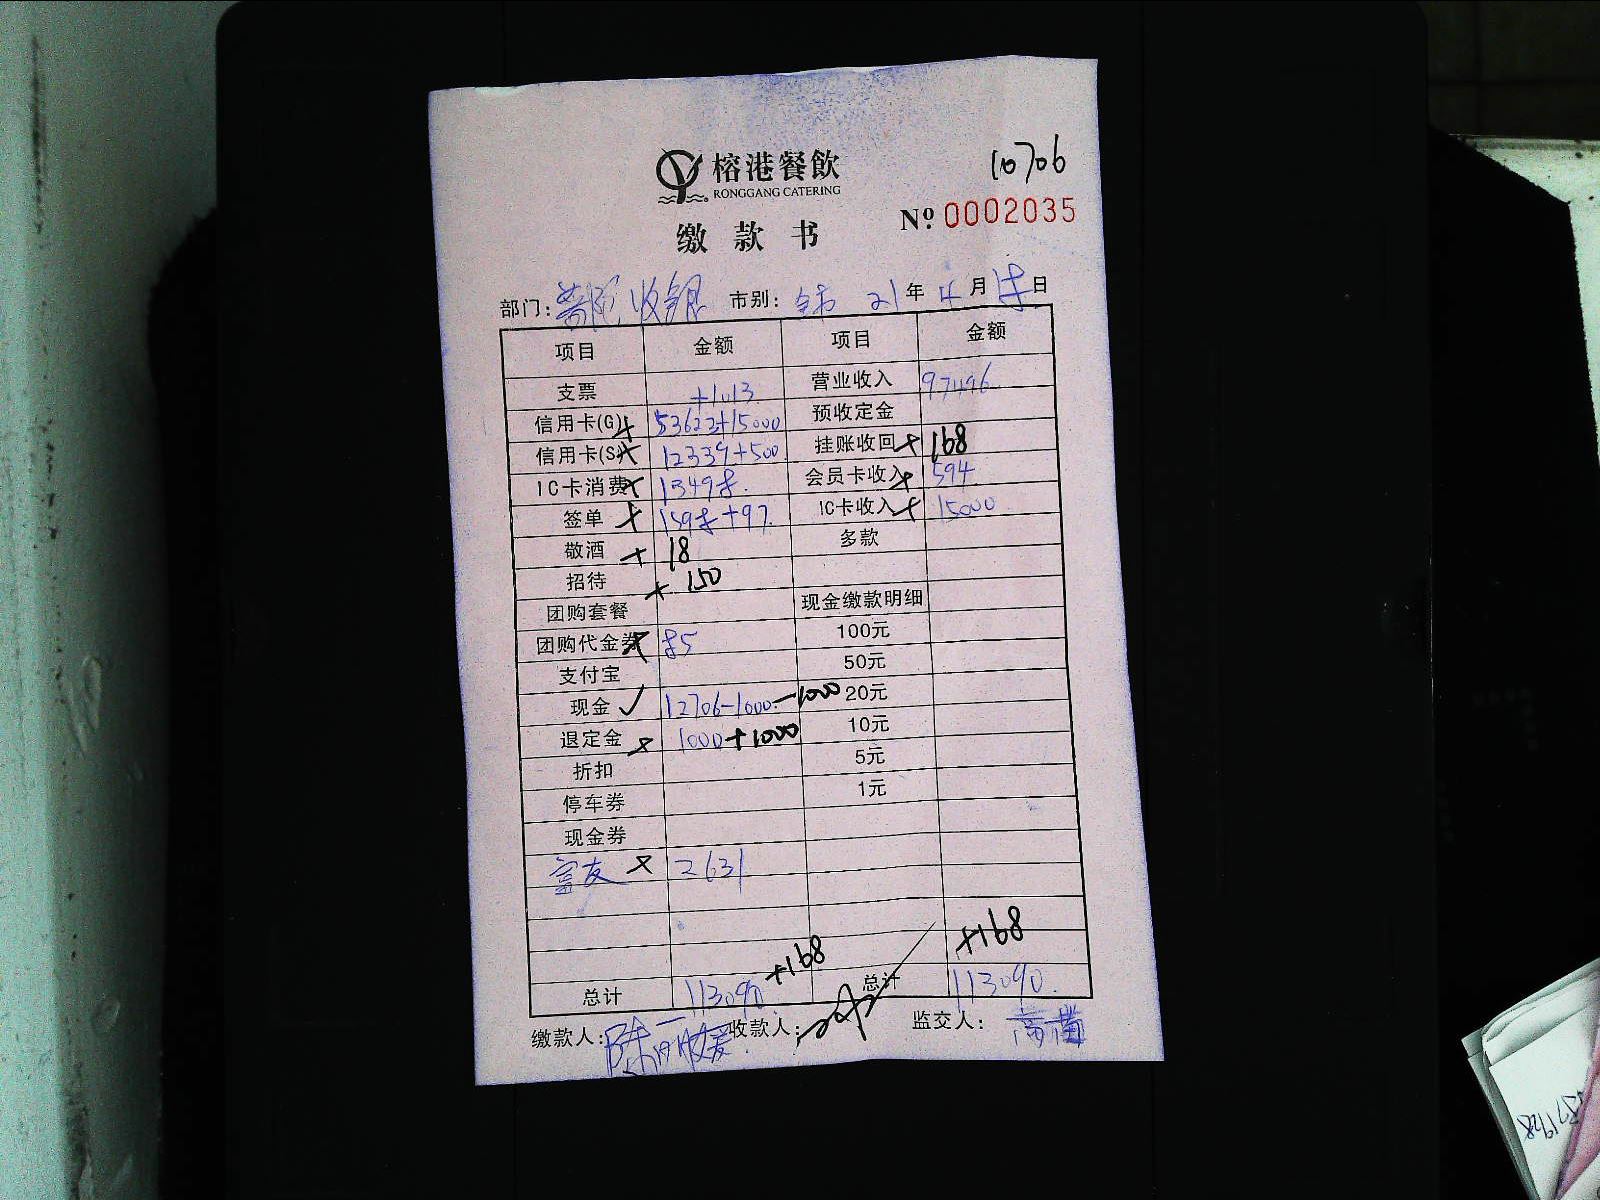 10706
榕港餐飲
RONGGANG CATERING
№ 0002035
缴款书
部门: 收银 市别: 21年4月18日
项目 金额 项目 金额
支票 +1.13 营业收入 97496
信用卡(G) 53622+15000 预收定金
信用卡(S) 12339+500 挂账收回 168
IC卡消费 13498. 会员卡收入 594
签单 1598+97 IC卡收入 15000
敬酒 18 多款
招待 150
团购套餐 现金缴款明细
团购代金券 85 100元
支付宝 50元
现金 12706-1000-1000 20元
退定金 1000+1000 10元
折扣 5元
停车券 1元
现金券
富友 2631
+168 +168
总计 113090 总计 113090.
缴款人: 收款人: 监交人: